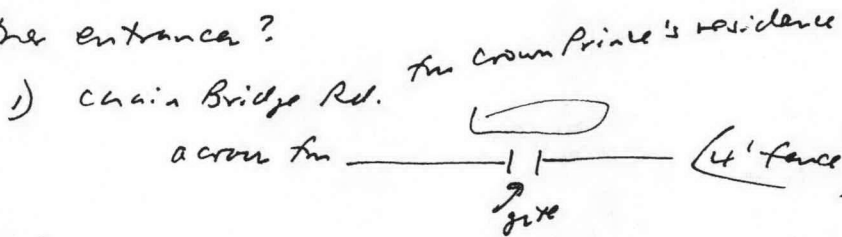 entrances?
1) Chain Bridge Rd. fm Crown Prince's residence
across fm (4' fence
gate